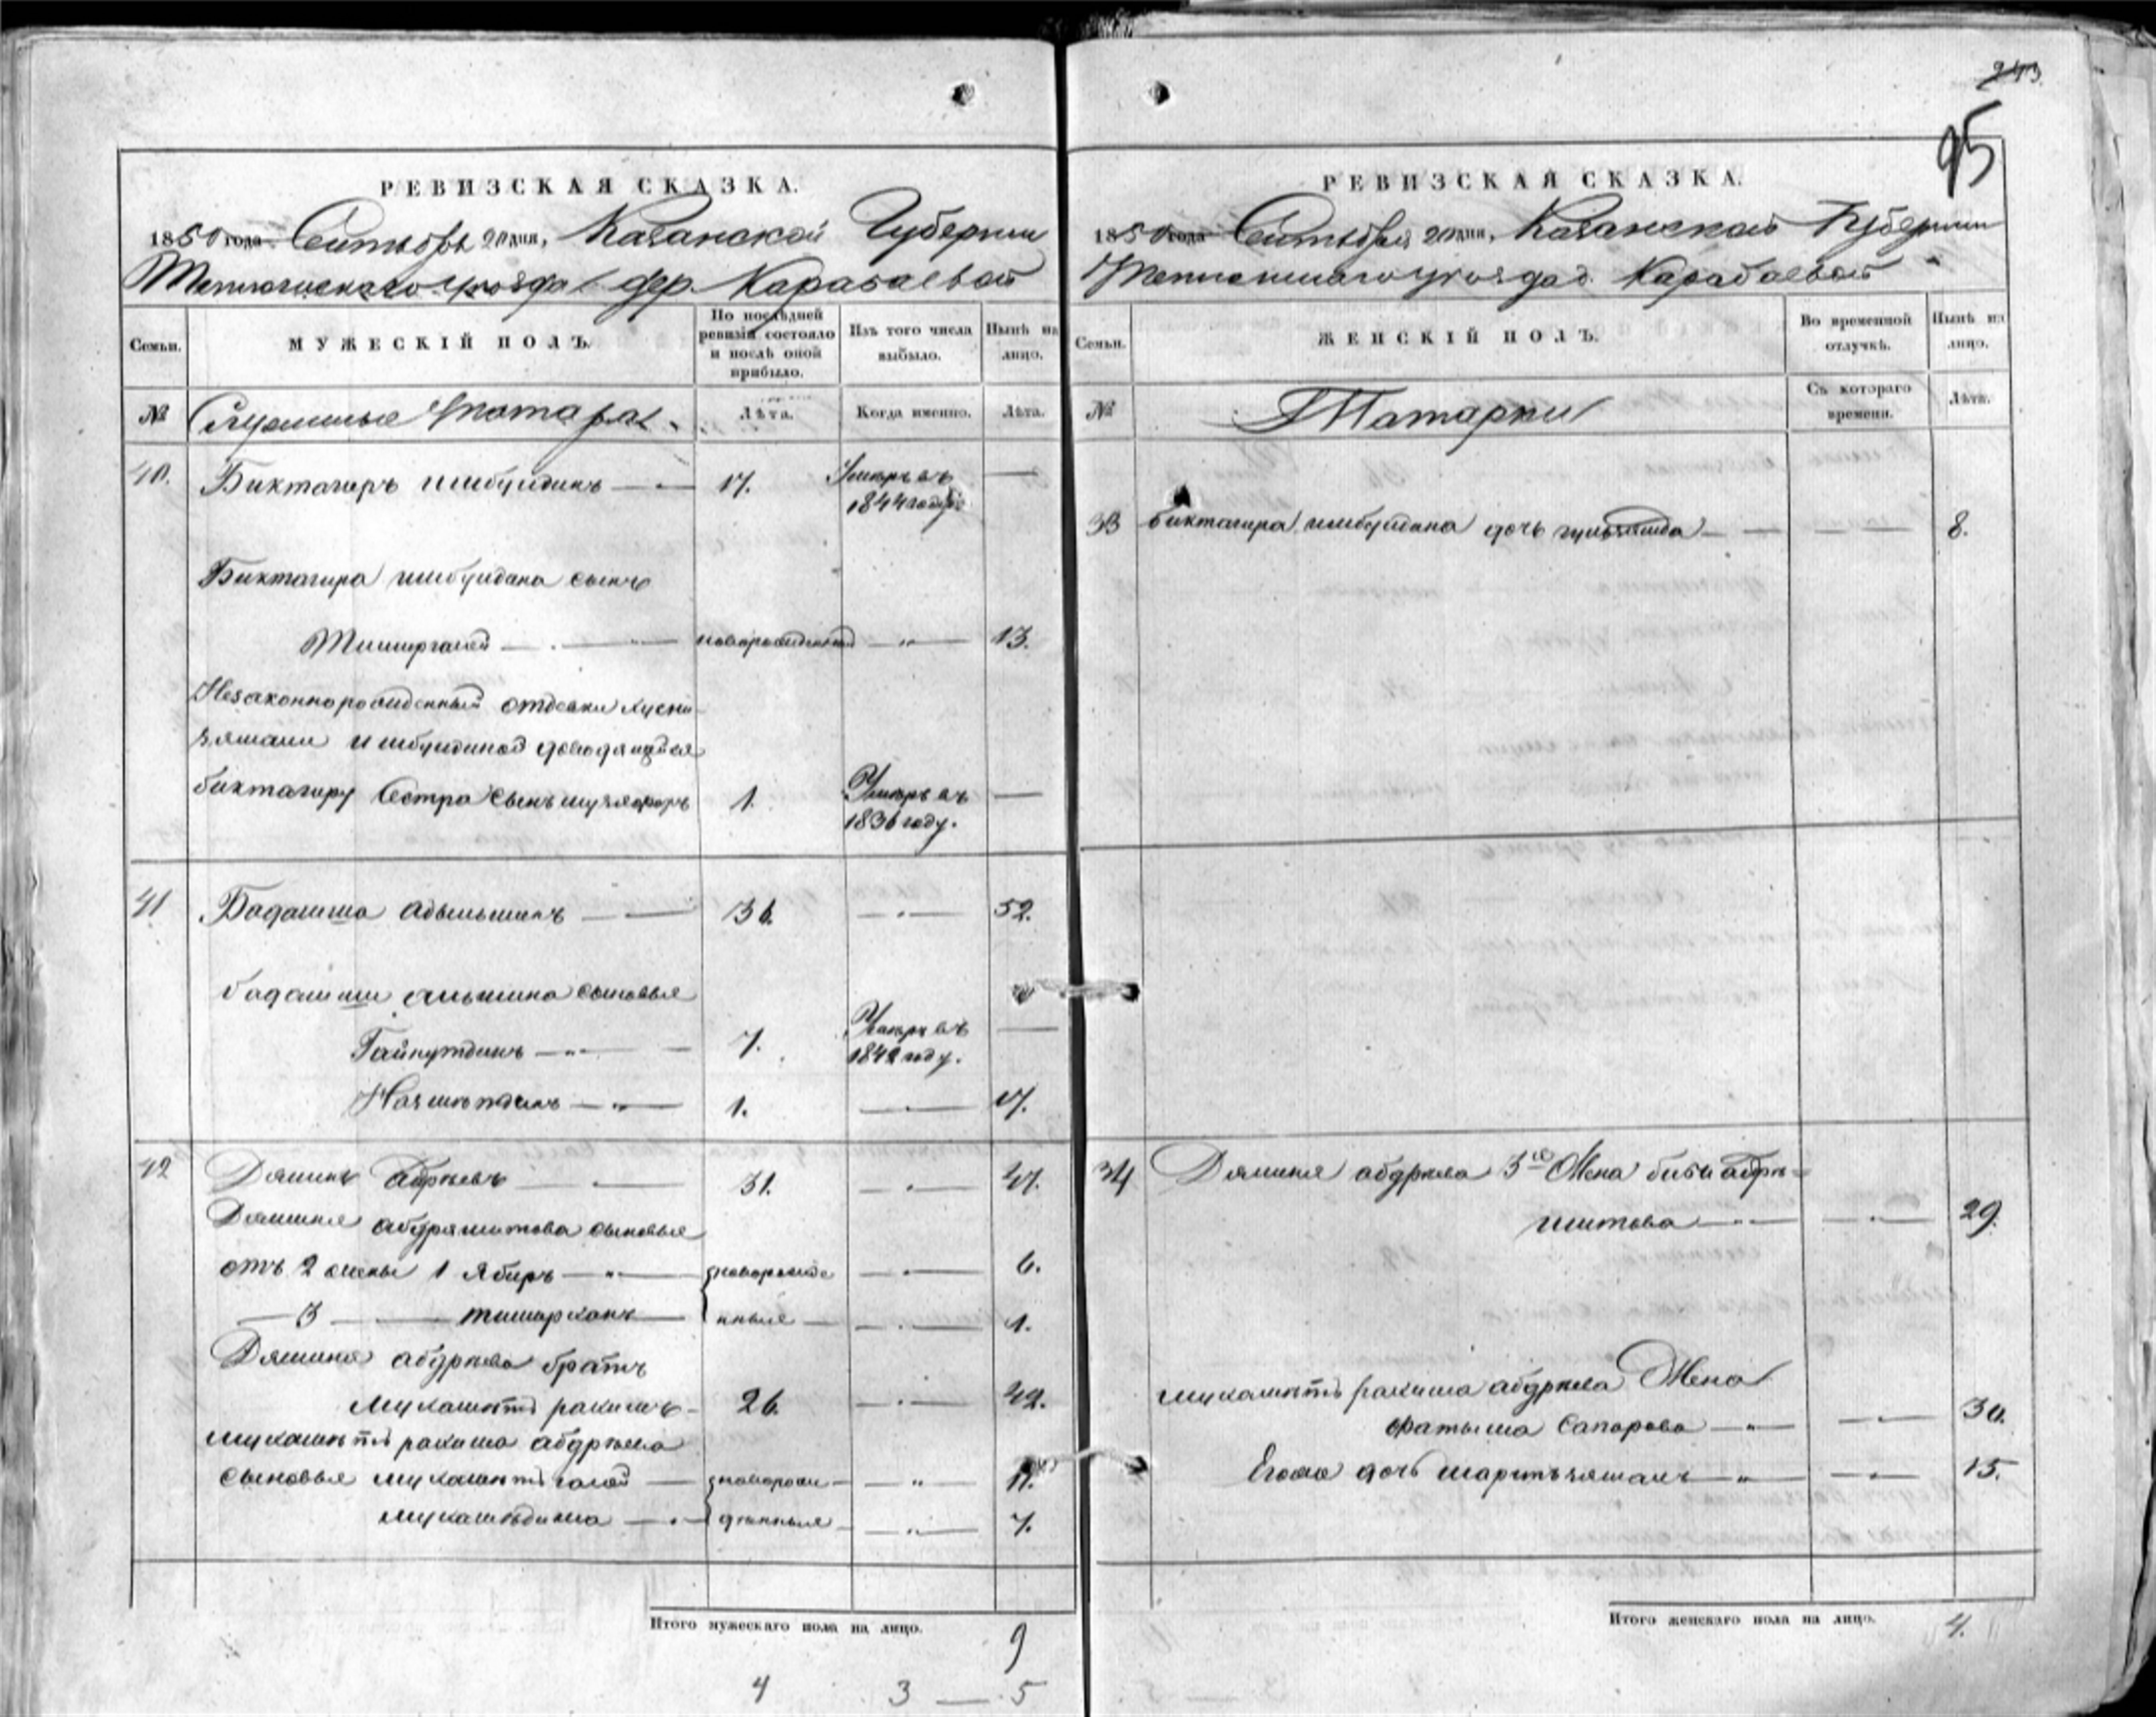 243
95
РЕВИЗСКАЯ СКАЗКА.
1850 года Сентября 20 дня, Казанской Губернии
Тетюшскаго уезда дер. Карабаевой
Семьи.
МУЖЕСКІЙ ПОЛЪ.
По послѣдней ревизіи состояло и послѣ оной прибыло.
Изъ того числа выбыло.
Нынѣ на лицо.
№
татары.
Лѣта.
Когда именно.
Лѣта.
40.
Биктагиръ ишбулдинъ
17.
Умеръ въ
1844 году
Биктагира ишбулдина сынъ
новорожденный
13.
Незаконнорожденный отдевки хусни
зямали ишбулдиной доводящейся
биктагиру сестра сынъ
1.
Умеръ въ
1836 году.
41
Бадамша
36.
52.
бадамши сыновья
Гайнутдинъ
7.
Умеръ въ
1842 году.
1.
17.
42
Дяминъ Абдреевъ
31.
47.
Дямина абдряшитова сыновья
отъ 2 жены 1 Ябиръ
новорожде
6.
3
нные
1.
Дямина абдреева братъ
Мухаметь рахимъ
26.
42.
Мухаметь рахима абдреева
сыновья мухаметь галей
новорож
11.
мухаметдинъ
денные
7.
Итого мужескаго пола на лицо.
9
4
3
5
РЕВИЗСКАЯ СКАЗКА.
1850 года Сентября 20 дня, Казанской Губернии
Тетюшскаго уезда д. Карабаевой
Семьи.
ЖЕНСКІЙ ПОЛЪ.
Во временной отлучкѣ.
Нынѣ на лицо.
№
Татарки
Съ котораго времени.
Лѣта.
33
биктагира ишбулдина дочь
8.
34
Дямина абдреева 3я Жена биби абдре=
шитова
29.
Мухаметь рахима абдреева Жена
фатыма Сапарова
30.
Егоже дочь
15.
Итого женскаго пола на лицо.
4.